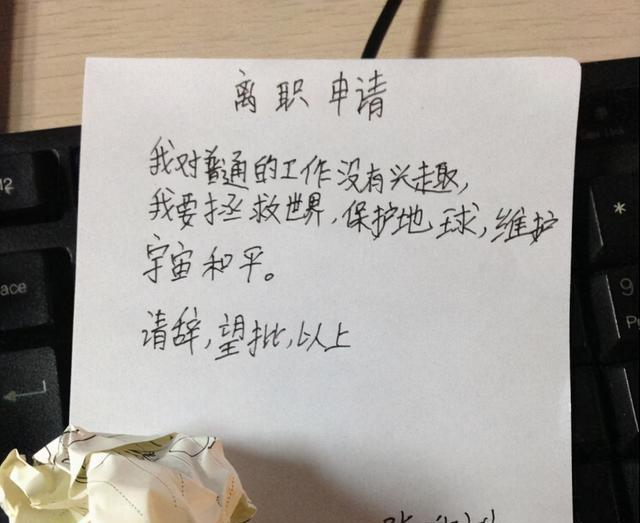 离职申请
我对普通的工作没有兴趣,
我要拯救世界,保护地球,维护
宇宙和平。
请辞,望批,以上
12
ace
*
9